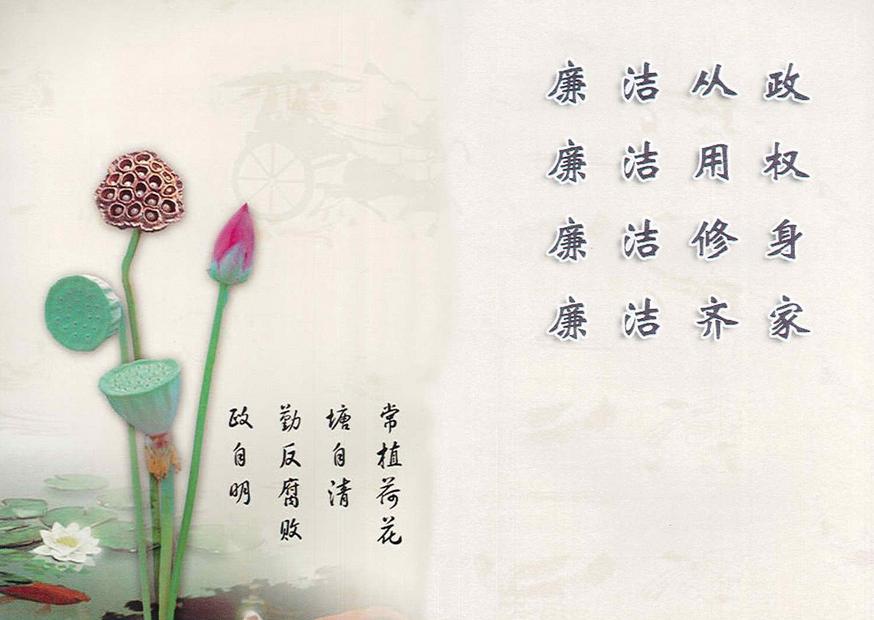 常植荷花
塘自清
勤反腐败
政自明
廉洁从政
廉洁用权
廉洁修身
廉洁齐家